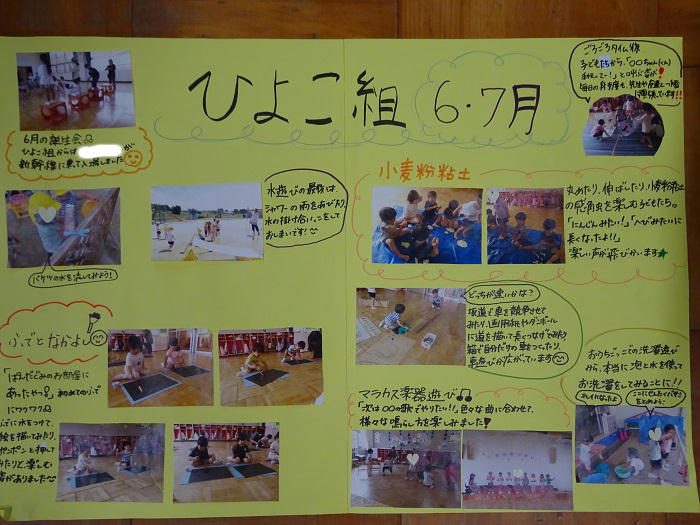 ひよこ組 6・7月
6月の誕生会♫
ひよこ組からは
新幹線に乗て入場しました
ごろごろタイム後
子どもたちから、「○○ちゃん(くん)
手伝って～!」と呼ぶ声が!
小麦粉粘土
丸めたり、伸ばしたり、小麦粉粘土
の感触を楽しむ子どもたち。
「にんじんみたい!」「へびみたいに
長くなったよ!!」
楽しい声が飛びかいます★
水遊びの最後は、
シャワーの雨をあびたり、
水の掛け合いっこをして
おしまいです!
バケツの水を流してみよう!
どっちが速いかな?
坂道で車を競争させて
みたり、画用紙やダンボール
に道を描いて長くつなげてみたり
箱で自分だけの車をつくったり、
車遊びが広がっています
ふでとなかよし
「ぱんだぐみのお部屋に
あったやつ!」初めてのふで
にワクワク♫
ふでに水をつけて、
絵を描いてみたり、
マラカス楽器遊び♫
「次は○○の歌でやりたい!!」色々な曲に合わせて、
様々な鳴らし方を楽しみました!
おうちごっこでの洗濯遊び
から、本当に泡と水を使って
お洗濯をしてみることに!!
キレイになったよ